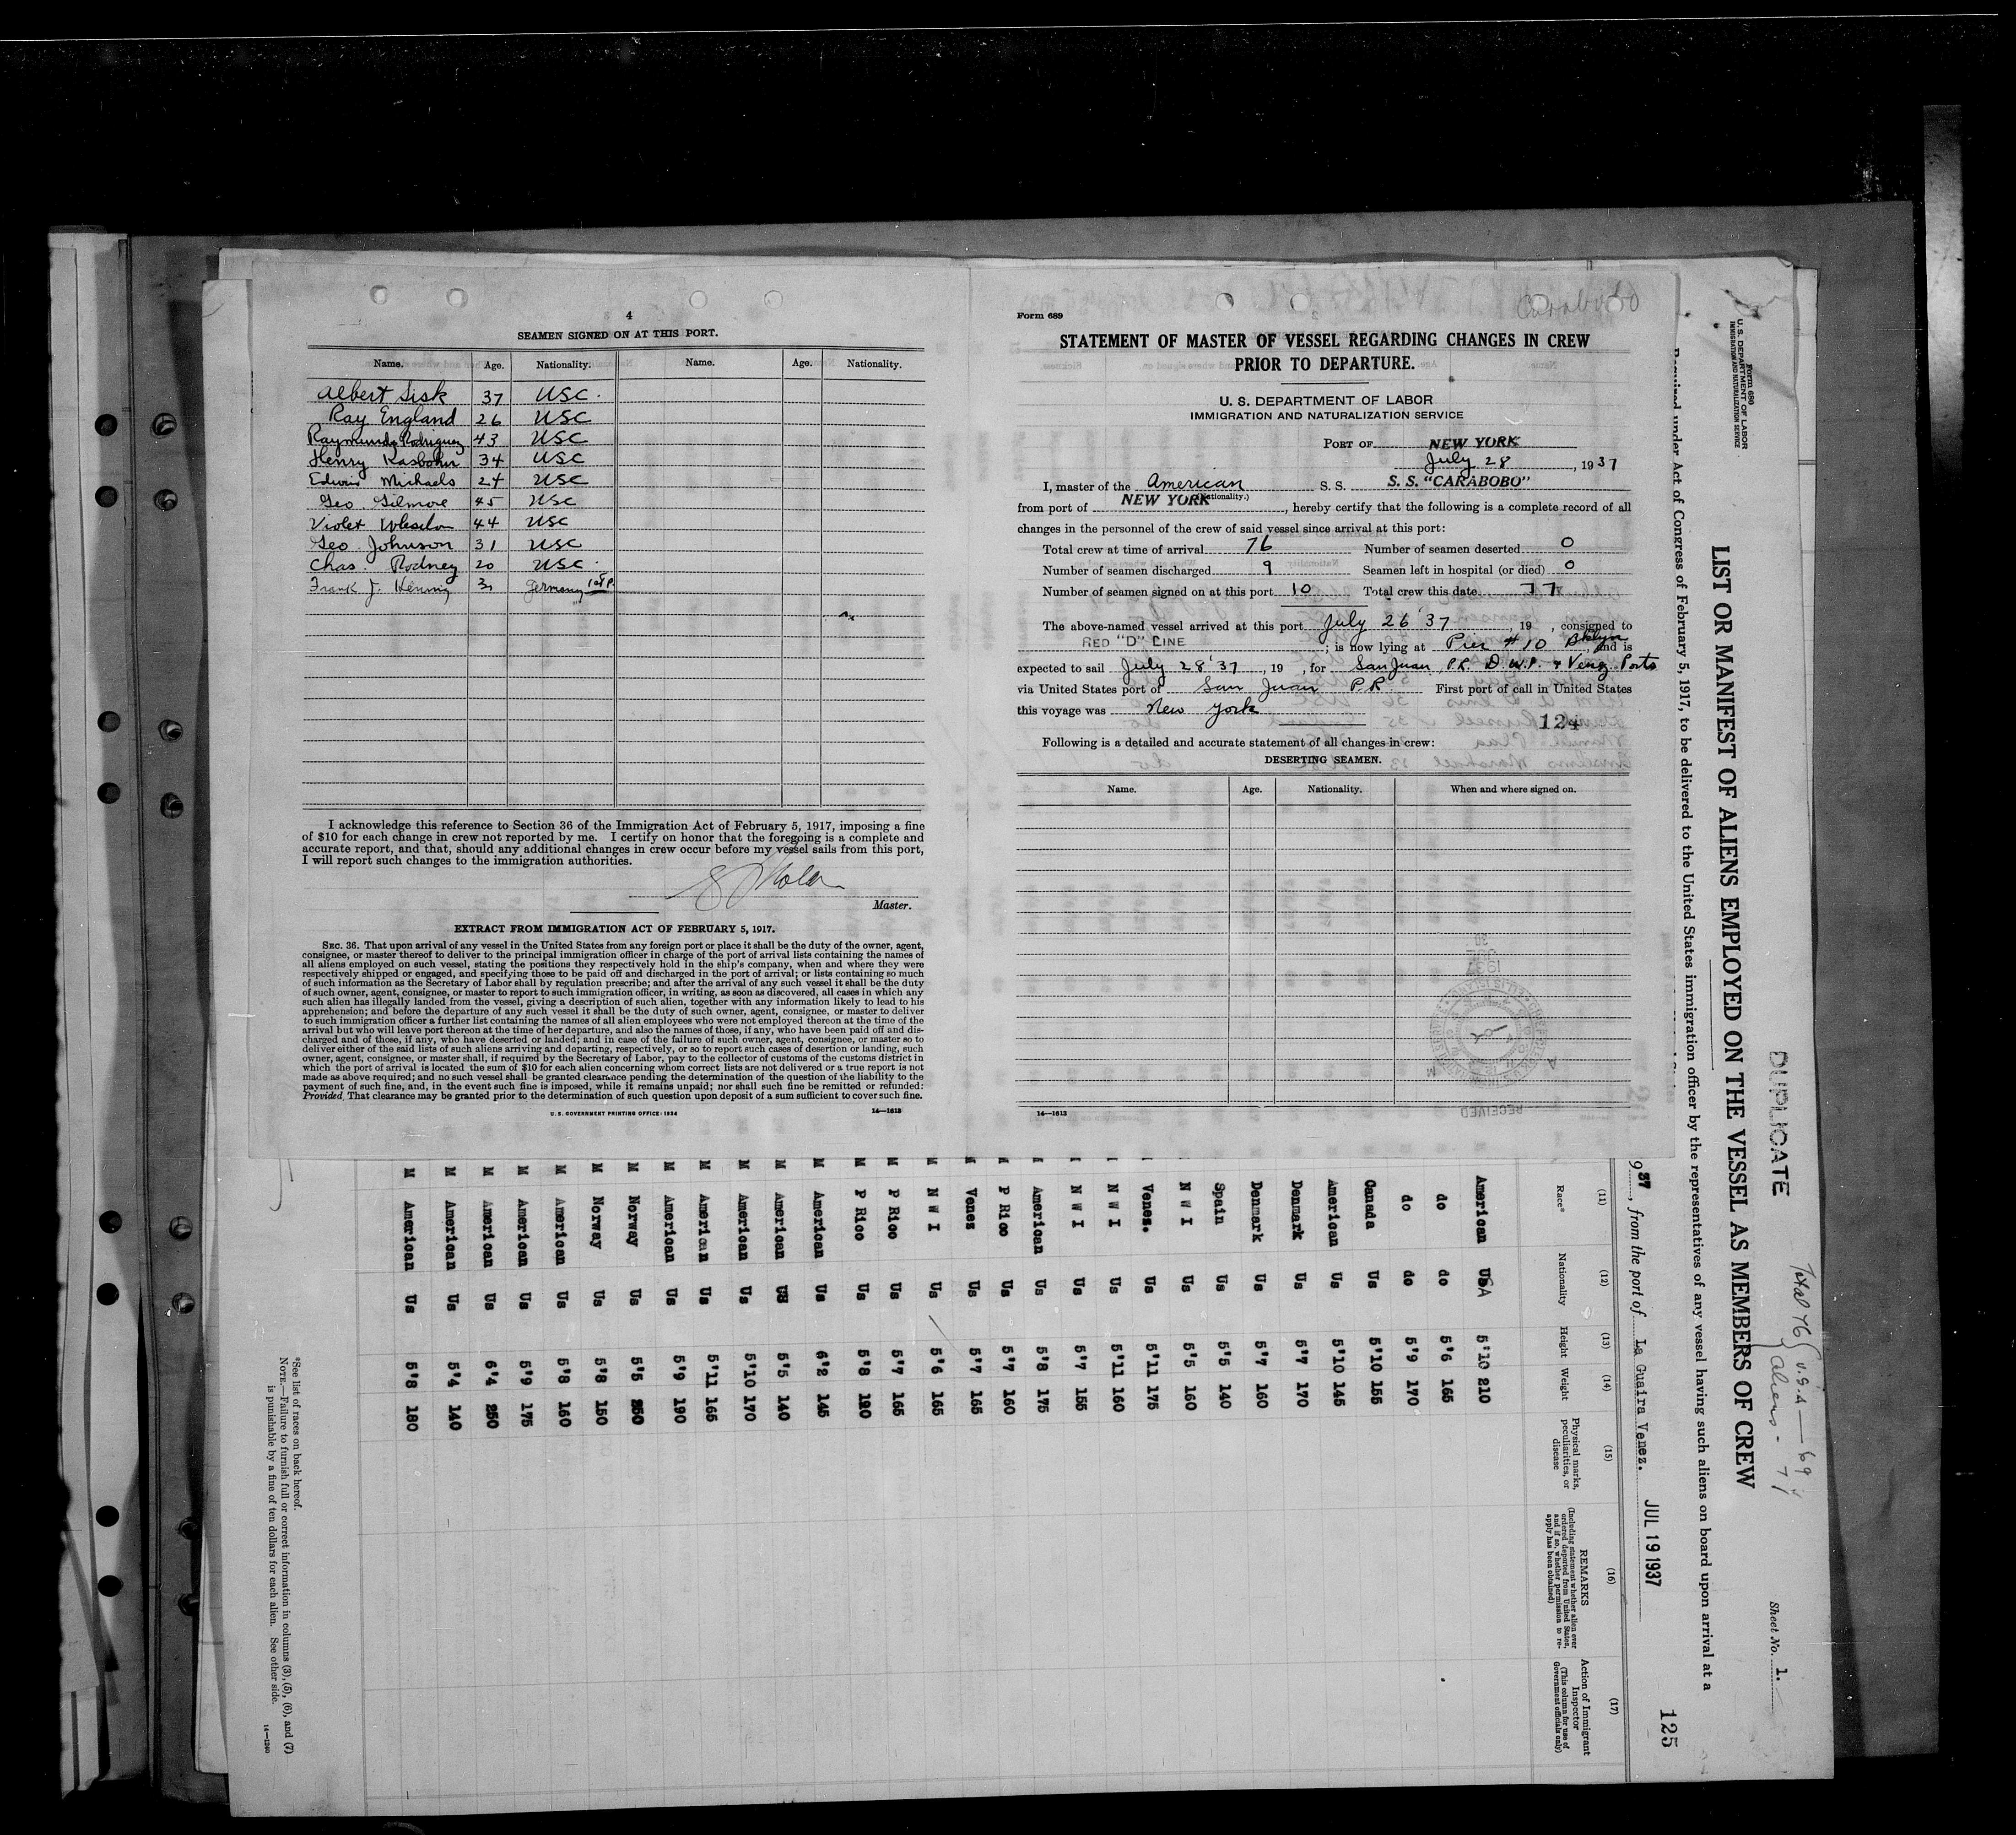 4
SEAMEN SIGNED ON AT THIS PORT.
Name. Age. Nationality. Name. Age. Nationality.
Albert Sisk 37 USC.
Ray England 26 USC
Raymundo Rodriguez 43 USC
Henry Kasbohn 34 USC
Edwin Michaels 24 USC
Geo. Gilmore 45 USC
Violet 44 USC
Geo. Johnson 31 USC
Chas. Rodney 20 USC.
Frank J. Germany 1st P.
I acknowledge this reference to Section 36 of the Immigration Act of February 5, 1917, imposing a fine
of $10 for each change in crew not reported by me. I certify on honor that the foregoing is a complete and
accurate report, and that, should any additional changes in crew occur before my vessel sails from this port,
I will report such changes to the immigration authorities.
Master.
EXTRACT FROM IMMIGRATION ACT OF FEBRUARY 5, 1917.
SEC. 36. That upon arrival of any vessel in the United States from any foreign port or place it shall be the duty of the owner, agent,
consignee, or master thereof to deliver to the principal immigration officer in charge of the port of arrival lists containing the names of
all aliens employed on such vessel, stating the positions they respectively hold in the ship's company, when and where they were
respectively shipped or engaged, and specifying those to be paid off and discharged in the port of arrival; or lists containing so much
of such information as the Secretary of Labor shall by regulation prescribe; and after the arrival of any such vessel it shall be the duty
of such owner, agent, consignee, or master to report to such immigration officer, in writing, as soon as discovered, all cases in which any
such alien has illegally landed from the vessel, giving a description of such alien, together with any information likely to lead to his
apprehension; and before the departure of any such vessel it shall be the duty of such owner, agent, consignee, or master to deliver
to such immigration officer a further list containing the names of all alien employees who were not employed thereon at the time of the
arrival but who will leave port thereon at the time of her departure, and also the names of those, if any, who have been paid off and dis-
charged and of those, if any, who have deserted or landed; and in case of the failure of such owner, agent, consignee, or master so to
deliver either of the said lists of such aliens arriving and departing, respectively, or so to report such cases of desertion or landing, such
owner, agent, consignee, or master shall, if required by the Secretary of Labor, pay to the collector of customs of the customs district in
which the port of arrival is located the sum of $10 for each alien concerning whom correct lists are not delivered or a true report is not
made as above required; and no such vessel shall be granted clearance pending the determination of the question of the liability to the
payment of such fine, and, in the event such fine is imposed, while it remains unpaid; nor shall such fine be remitted or refunded:
Provided, That clearance may be granted prior to the determination of such question upon deposit of a sum sufficient to cover such fine.
U. S. GOVERNMENT PRINTING OFFICE: 1934 14—1613
Carabobo
Form 689
STATEMENT OF MASTER OF VESSEL REGARDING CHANGES IN CREW
PRIOR TO DEPARTURE.
U. S. DEPARTMENT OF LABOR
IMMIGRATION AND NATURALIZATION SERVICE
PORT OF NEW YORK
July 28, 1937
I, master of the American S. S. S. S. "CARABOBO"
(Nationality.)
from port of NEW YORK, hereby certify that the following is a complete record of all
changes in the personnel of the crew of said vessel since arrival at this port:
Total crew at time of arrival 76 Number of seamen deserted 0
Number of seamen discharged 9 Seamen left in hospital (or died) 0
Number of seamen signed on at this port 10 Total crew this date 77
The above-named vessel arrived at this port July 26 '37, 19 , consigned to
RED "D" LINE; is now lying at Pier #10 Bklyn, and is
expected to sail July 28 '37, 19 , for San Juan, P.R. D.W.I. & Venez. Ports
via United States port of San Juan P.R. First port of call in United States
this voyage was New York
124
Following is a detailed and accurate statement of all changes in crew:
DESERTING SEAMEN.
Name. Age. Nationality. When and where signed on.
14—1613
RECEIVED
Form 680
U. S. DEPARTMENT OF LABOR
IMMIGRATION AND NATURALIZATION SERVICE
DUPLICATE
Total 76 U.S.A — 69
Aliens - 7
Sheet No. 1.
LIST OR MANIFEST OF ALIENS EMPLOYED ON THE VESSEL AS MEMBERS OF CREW
Required under Act of Congress of February 5, 1917, to be delivered to the United States immigration officer by the representatives of any vessel having such aliens on board upon arrival at a
125
1937, from the port of La Guaira Venez. JUL 19 1937
(11) (12) (13) (14) (15) (16) (17)
Race* Nationality Height Weight Physical marks, peculiarities, or disease REMARKS (Including statement whether alien ever ordered deported from United States, and if so, whether permission to re-apply has been obtained) Action of Immigrant Inspector (This column for use of Government officials only)
American USA 5'10 210
do do 5'6 165
do do 5'9 170
Canada Us 5'10 155
American Us 5'10 145
Denmark Us 5'7 170
Denmark Us 5'7 160
Spain Us 5'5 140
N W I Us 5'5 160
Venez. Us 5'11 175
N W I Us 5'11 160
N W I Us 5'7 155
American Us 5'8 175
P Rico Us 5'7 160
Venez Us 5'7 165
M N W I Us 5'6 165
M P Rico Us 5'7 165
M P Rico Us 5'8 120
M American Us 6'2 145
M American US 5'5 140
M American Us 5'10 170
M American Us 5'11 165
M American Us 5'9 190
M Norway Us 5'5 250
M Norway Us 5'8 150
M American Us 5'8 160
M American Us 5'9 175
M American Us 6'4 250
M American Us 5'4 140
M American Us 5'8 180
*See list of races on back hereof.
NOTE.—Failure to furnish full or correct information in columns (3), (5), (6), and (7)
is punishable by a fine of ten dollars for each alien. See other side.
14—1240